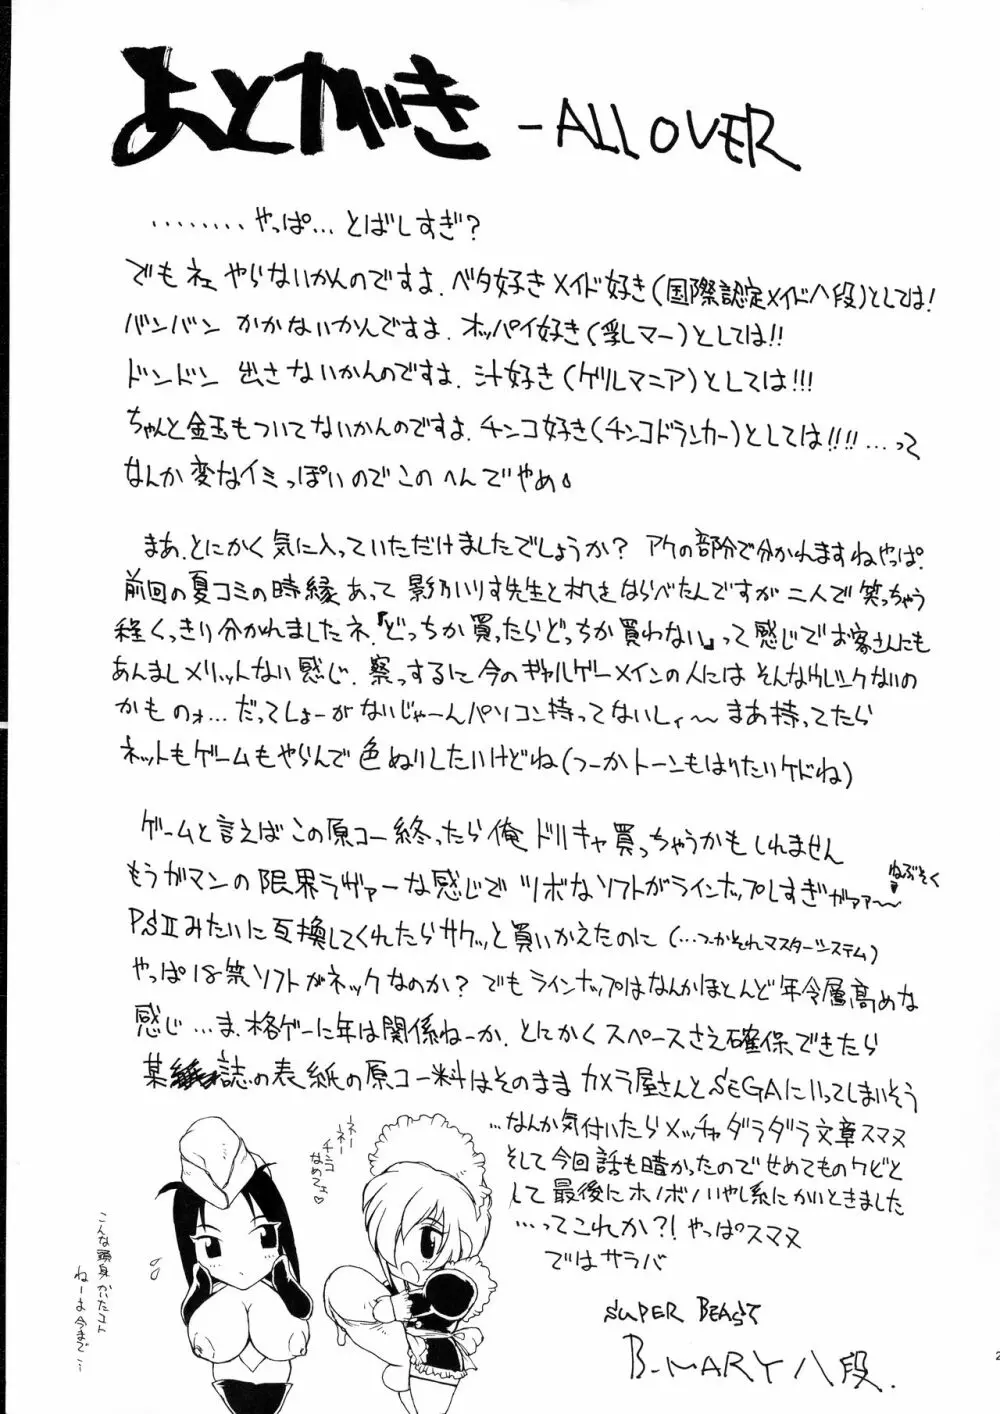 あとがき -ALL OVER
........やっぱ…とばしすぎ?
でもネェ やらないかんのですよ.ベタ好きメイド好き(国際認定メイド八段)としては!
バンバン かかないかんですよ.オッパイ好き(乳マー)としては!!
ドンドン 出さないかんのですよ.汁好き(ゲリルマニア)としては!!!
ちゃんと金玉もついてないかんのですよ.チンコ好き(チンコドランカー)としては!!!!…って
なんか変なイミっぽいのでこのへんでやめ。
まあ.とにかく気に入っていただけましたでしょうか? アケの部分で分かれますねやっぱ.
前回の夏コミの時縁あって 影乃いりす先生と札をならべたんですが二人で笑っちゃう
程くっきり分かれましたネ.『どっちか買ったらどっちか買わない』って感じでお客さんにも
あんましメリットない感じ.察っするに今のギャルゲーメインの人には そんなにリンクないの
かも のォ…だってしょーがないじゃーんパソコン持ってないしィ〜まあ持ってたら
ネットもゲームもやらんで色ぬりしたいけどね(つーかトーンもはりたいケドね)
ゲームと言えばこの原コー終ったら俺ドリキャ買っちゃうかもしれません
もうガマンの限界ラヴァーな感じでツボなソフトがラインナップしすぎがァァ〜
ねぶそく
PSⅡみたいに互換してくれたらサクッと買いかえたのに(…つーかそれマスターシステム)
やっぱ18禁ソフトがネックなのか?でもラインナップはなんかほとんど年令層高めな
感じ…ま.格ゲーに年は関係ねーか.とにかくスペースさえ確保できたら
某誌の表紙の原コー料はそのままカメラ屋さんとSEGAにいってしまいそう
…なんか気付いたらメッチャダラダラ文章スマヌ
そして今回話も暗かったのでせめてものケビと
して最後にホノボノいやし系にかいときました
…ってこれか?!やっぱスマヌ
ではサラバ
SUPER BEAST
B-MARY 八段.
ネー
ネー
チ○コ
なめてェ♡
こんな頭身かいたコト
ねーよ今まで…
2